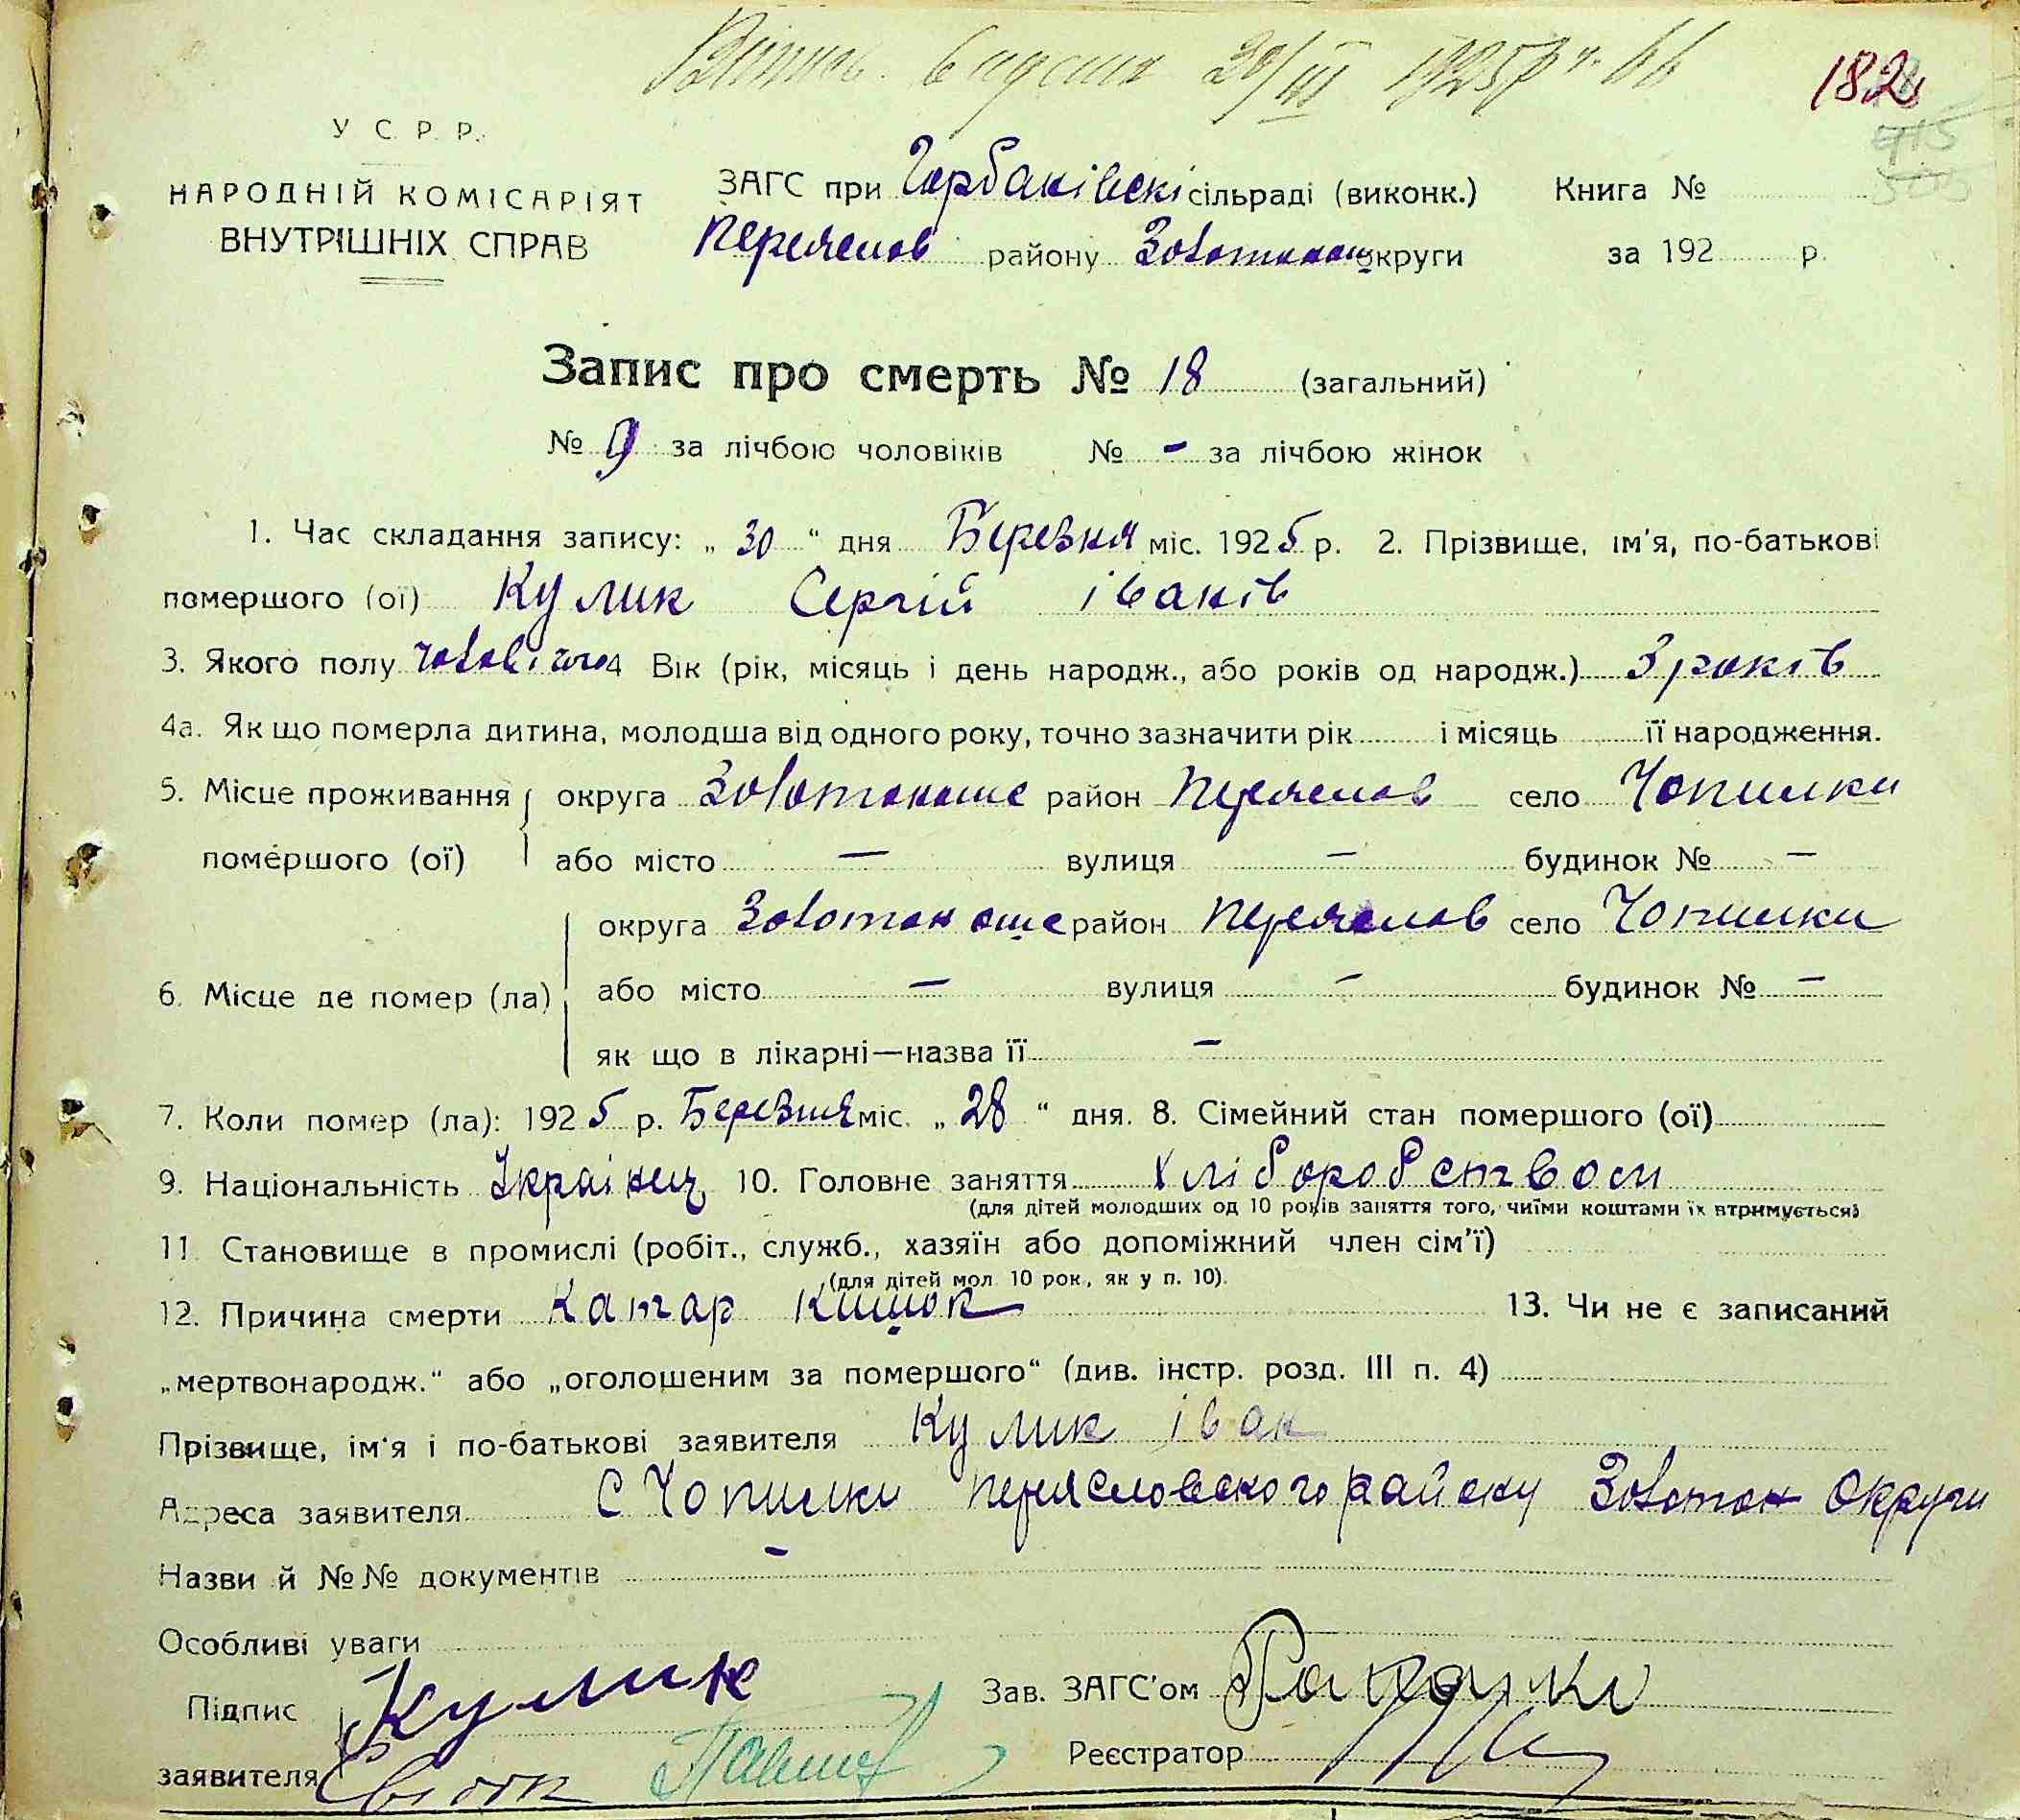 Витяг видана 30/III 1925 р ч. 66
182
У С. Р. Р.
НАРОДНІЙ КОМІСАРІЯТ
ВНУТРІШНІХ СПРАВ
ЗАГС при Горбанівскі сільраді (виконк.) Книга №
Переяслов району Золотонош округи за 192 р.
Запис про смерть № 18 (загальний)
№ 9 за лічбою чоловіків № - за лічбою жінок
1. Час складання запису: „ 30 “ дня Березня міс. 1925 р. 2. Прізвище, ім'я, по-батькові
помершого (ої) Кулик Сергій іванів
3. Якого полу чоловічого 4 Вік (рік, місяць і день народж., або років од народж.) 3 років
4а. Як що померла дитина, молодша від одного року, точно зазначити рік і місяць її народження.
5. Місце проживання округа Золотоноше район Переяслов село Чопилки
помершого (ої) або місто — вулиця — будинок № —
округа Золотоноше район Переяслов село Чопилки
6. Місце де помер (ла) або місто — вулиця — будинок № —
як що в лікарні—назва її —
7. Коли помер (ла): 1925 р. Березня міс. „ 28 “ дня. 8. Сімейний стан помершого (ої)
9. Національність Українец 10. Головне заняття хліборобством
(для дітей молодших од 10 років заняття того, чиїми коштами їх втримується)
11. Становище в промислі (робіт., служб., хазяїн або допоміжний член сім'ї)
(для дітей мол. 10 рок., як у п. 10).
12. Причина смерти Катар кишок 13. Чи не є записаний
„мертвонародж.“ або „оголошеним за помершого“ (див. інстр. розд. III п. 4)
Прізвище, ім'я і по-батькові заявителя Кулик іван
Адреса заявителя С Чопилки переясловского району Золотон округи
Назви й №№ документів -
Особливі уваги
Підпис Кулик Зав. ЗАГС'ом
заявителя Реєстратор